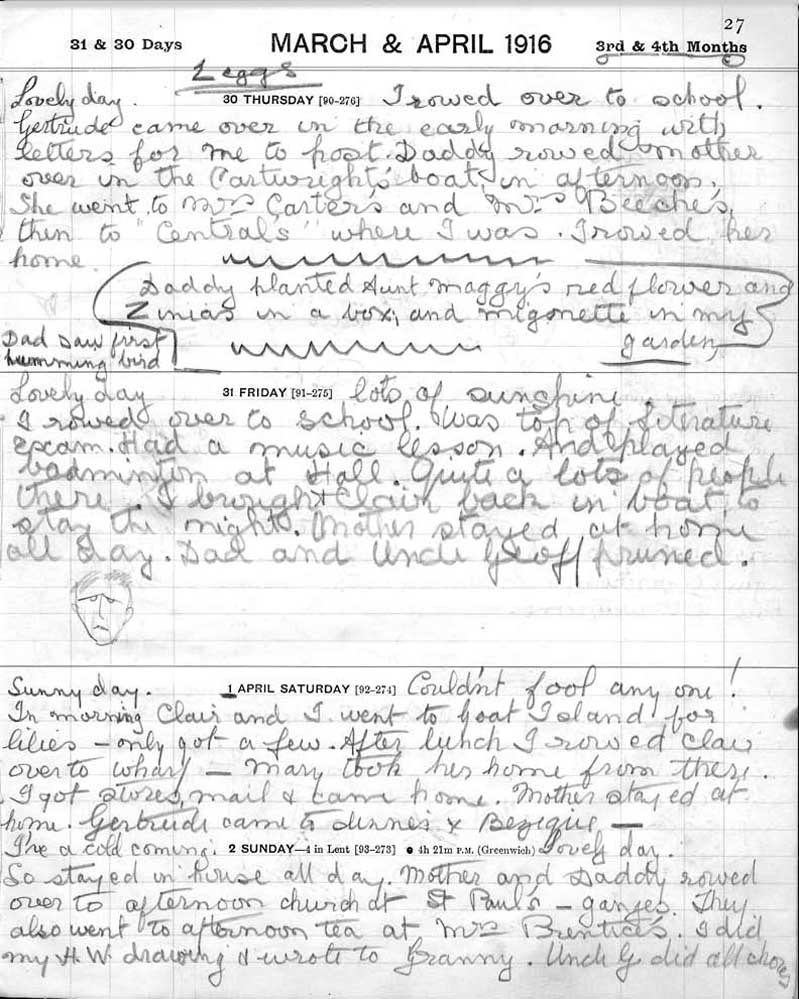 27
31 & 30 Days MARCH & APRIL 1916 3rd & 4th Months
2 eggs
Lovely day. 30 THURSDAY [90-276] I rowed over to school.
Gertrude came over in the early morning with
letters for me to post. Daddy rowed mother
over in the Cartwright's boat, in afternoon,
She went to Mrs Carter's and Mrs Beeche's,
then to "Central's" where I was. I rowed her
home.
Daddy planted Aunt Maggy's red flower and
Zinias in a box, and migonette in my
garden
Dad saw first
humming bird
Lovely day 31 FRIDAY [91-275] lots of sunshine.
I rowed over to school. Was top of Literature
exam. Had a music lesson. And played
badminton at Hall. Quite a lots of people
there. I brought Clair back in boat to
stay the night. Mother stayed at home
all day. Dad and Uncle Geoff pruned.
Sunny day. 1 APRIL SATURDAY [92-274] Couldn't fool any one!
In morning Clair and I went to Goat Island for
lilies – only got a few. After lunch I rowed Clair
over to wharf – Mary took her home from there.
I got stores, mail & came home. Mother stayed at
home. Gertrude came to dinner & Bezique –
I've a cold coming. 2 SUNDAY—4 in Lent [93-273] ● 4h 21m P.M. (Greenwich) Lovely day.
So stayed in house all day. Mother and Daddy rowed
over to afternoon church at St Paul's – ganges. They
also went to afternoon tea at Mrs Brentice's. I did
my H.W. drawing & wrote to Granny. Uncle G did all chores